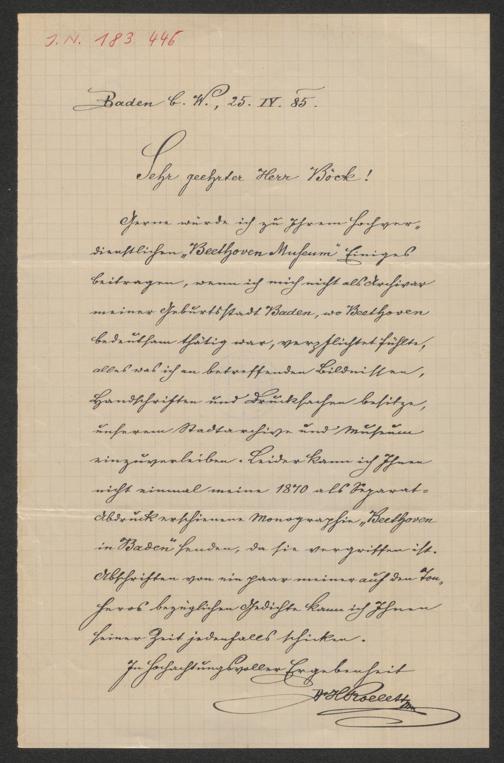 J. N. 183 446
Baden b. W., 25. IV. 85.
Sehr geehrter Herr Böck!
Gerne würde ich zu Ihrem hochver-
dienstlichen „Beethoven Museum“ Einiges
beitragen, wenn ich mich nicht als Archivar
meiner Geburtsstadt Baden, wo Beethoven
bedeutsam thätig war, verpflichtet fühlte,
alles was ich an betreffenden Bildnissen,
Handschriften und Drucksachen besitze,
unserem Stadtarchive und Museum
einzuverleiben. Leider kann ich Ihnen
nicht einmal meine 1870 als Separat-
Abdruck erschienene Monographie „Beethoven
in Baden“ senden, da sie vergriffen ist.
Abschriften von ein paar meiner auf den Ton-
heros bezüglichen Gedichte kann ich Ihnen
seiner Zeit jedenfalls schicken.
In hochachtungsvoller Ergebenheit
Dr H Rollett